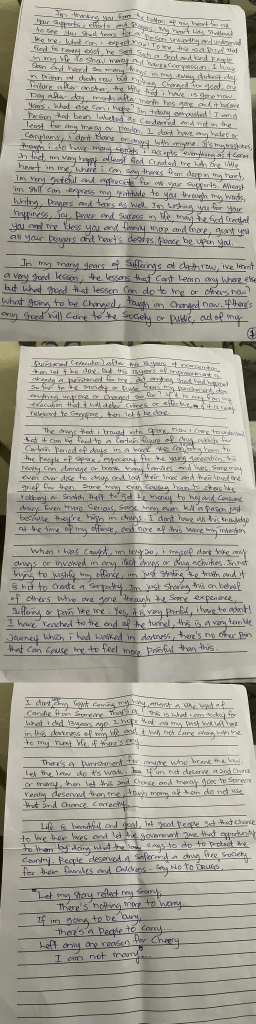 I'm thanking you from the bottom of my heart for all
your supports, efforts and prayers. My heart was shattered
to see you shed tears for a failure, unworthy and undeserved
like me. What can I expect more? To me, this is a proof that
God is really exist, he send such a good and kind people
in my life to show mercy and have compassion. I have
seen and heard so many things in my every darkest day
in prison at death row but nothing changed for good,
failure after another, the life that I have is gone now
Day after day, month after month has gone and it become
years. What else can I hope? I'm today exhausted! I am a
person that been labelled as condemned and not in the
least for any mercy or pardon. I dont have any hatred or
complains, I dont blame or angry with anyone. It's my mistakes,
though I do have many I accepts everything as it came.
In fact, im very happy atleast God created me with one little
heart in me, where I can say thanks from deep in my heart,
im very grateful and appreciate for all your supports. Atleast
im still can express my gratitude to you through my words,
writing, prayers and tears as well. Im wishing you for your
happiness, joy, peace and success in life, may the God created
you and me bless you and family more and more, grant you
all your prayers and heart's desires, peace be upon you.
In my many years of sufferings at death row, i've learnt
a very good lesson, the lessons that can't learn any where else
but what good that lesson can do to me or others now?
what going to be changed, though im changed now. If there's
any good will came to the society or public, out of my
punishment (execution) after this 13 years of
then let it be done. But this 13 years of imprisonment is
already a punishment for me, did anything good had happened
so far for the society or have been
anything improve or changed so far? If it is only from my
execution that it will deter crimes or effective, if it is
relevant to Singapore, then let it be done.
The drugs that i brought into S'pore, now i came to understand
that it can be feed to a certain figure of drug addicts for
certain period of days in a week. Its harming them to
the people of S'pore, especially for the young generation, this
really can damage or break many families and lives. Some may
even over dose to drugs and lost their lives and their loved ones
grief for them. Some may even caused harm to others like
robbery or snatch theft to get the money to buy and consume
drugs. Even more serious, some may even kill a person just
because they're high in drugs. I dont have all this knowledge
at the time of my offence, and none of this were my intention
When i was caught, im only 20, i myself dont take any
drugs or involved in any illicit drugs or drug activities. Im not
trying to justify my offence, im just stating the truth and it
is not to create a sympathy. Im just sharing this on behalf
of others who are gone through the same experience,
suffering or pain like me. Yes, it's very painful, i have to admit!
I have reached to the end of the tunnel, this is a very terrible
journey which i had walked in darkness, there's no other pain
that can cause me to feel more painful than this.
I dont any light coming my way, atleast a little light of
candle from someone. That's it, this is what i am today for
what i did 13 years ago. I hope that all my past will be left here
in this darkness of my life and it will not came along with me
to my next life, if there's any.
There's a punishment for anyone who break the law.
Let the law do it's work. If im not deserve a 2nd chance
or mercy, then let this 2nd chance and mercy goes to someone
really deserved than me, though many of them do not use
that 2nd chance correctly.
Life is beautiful and good, let good people get that chance
to live their lives and let the government give that opportunity
to them by doing what the law says to do to protect the
country. People deserved a safer and a drug free society
for their families and children. Say NO TO DRUGS.
"Let my story reflect my sorry,
There's nothing more to worry..
If im going to be bury,
There's a people to carry..
Left only one reason for cheery
I am not marry"..